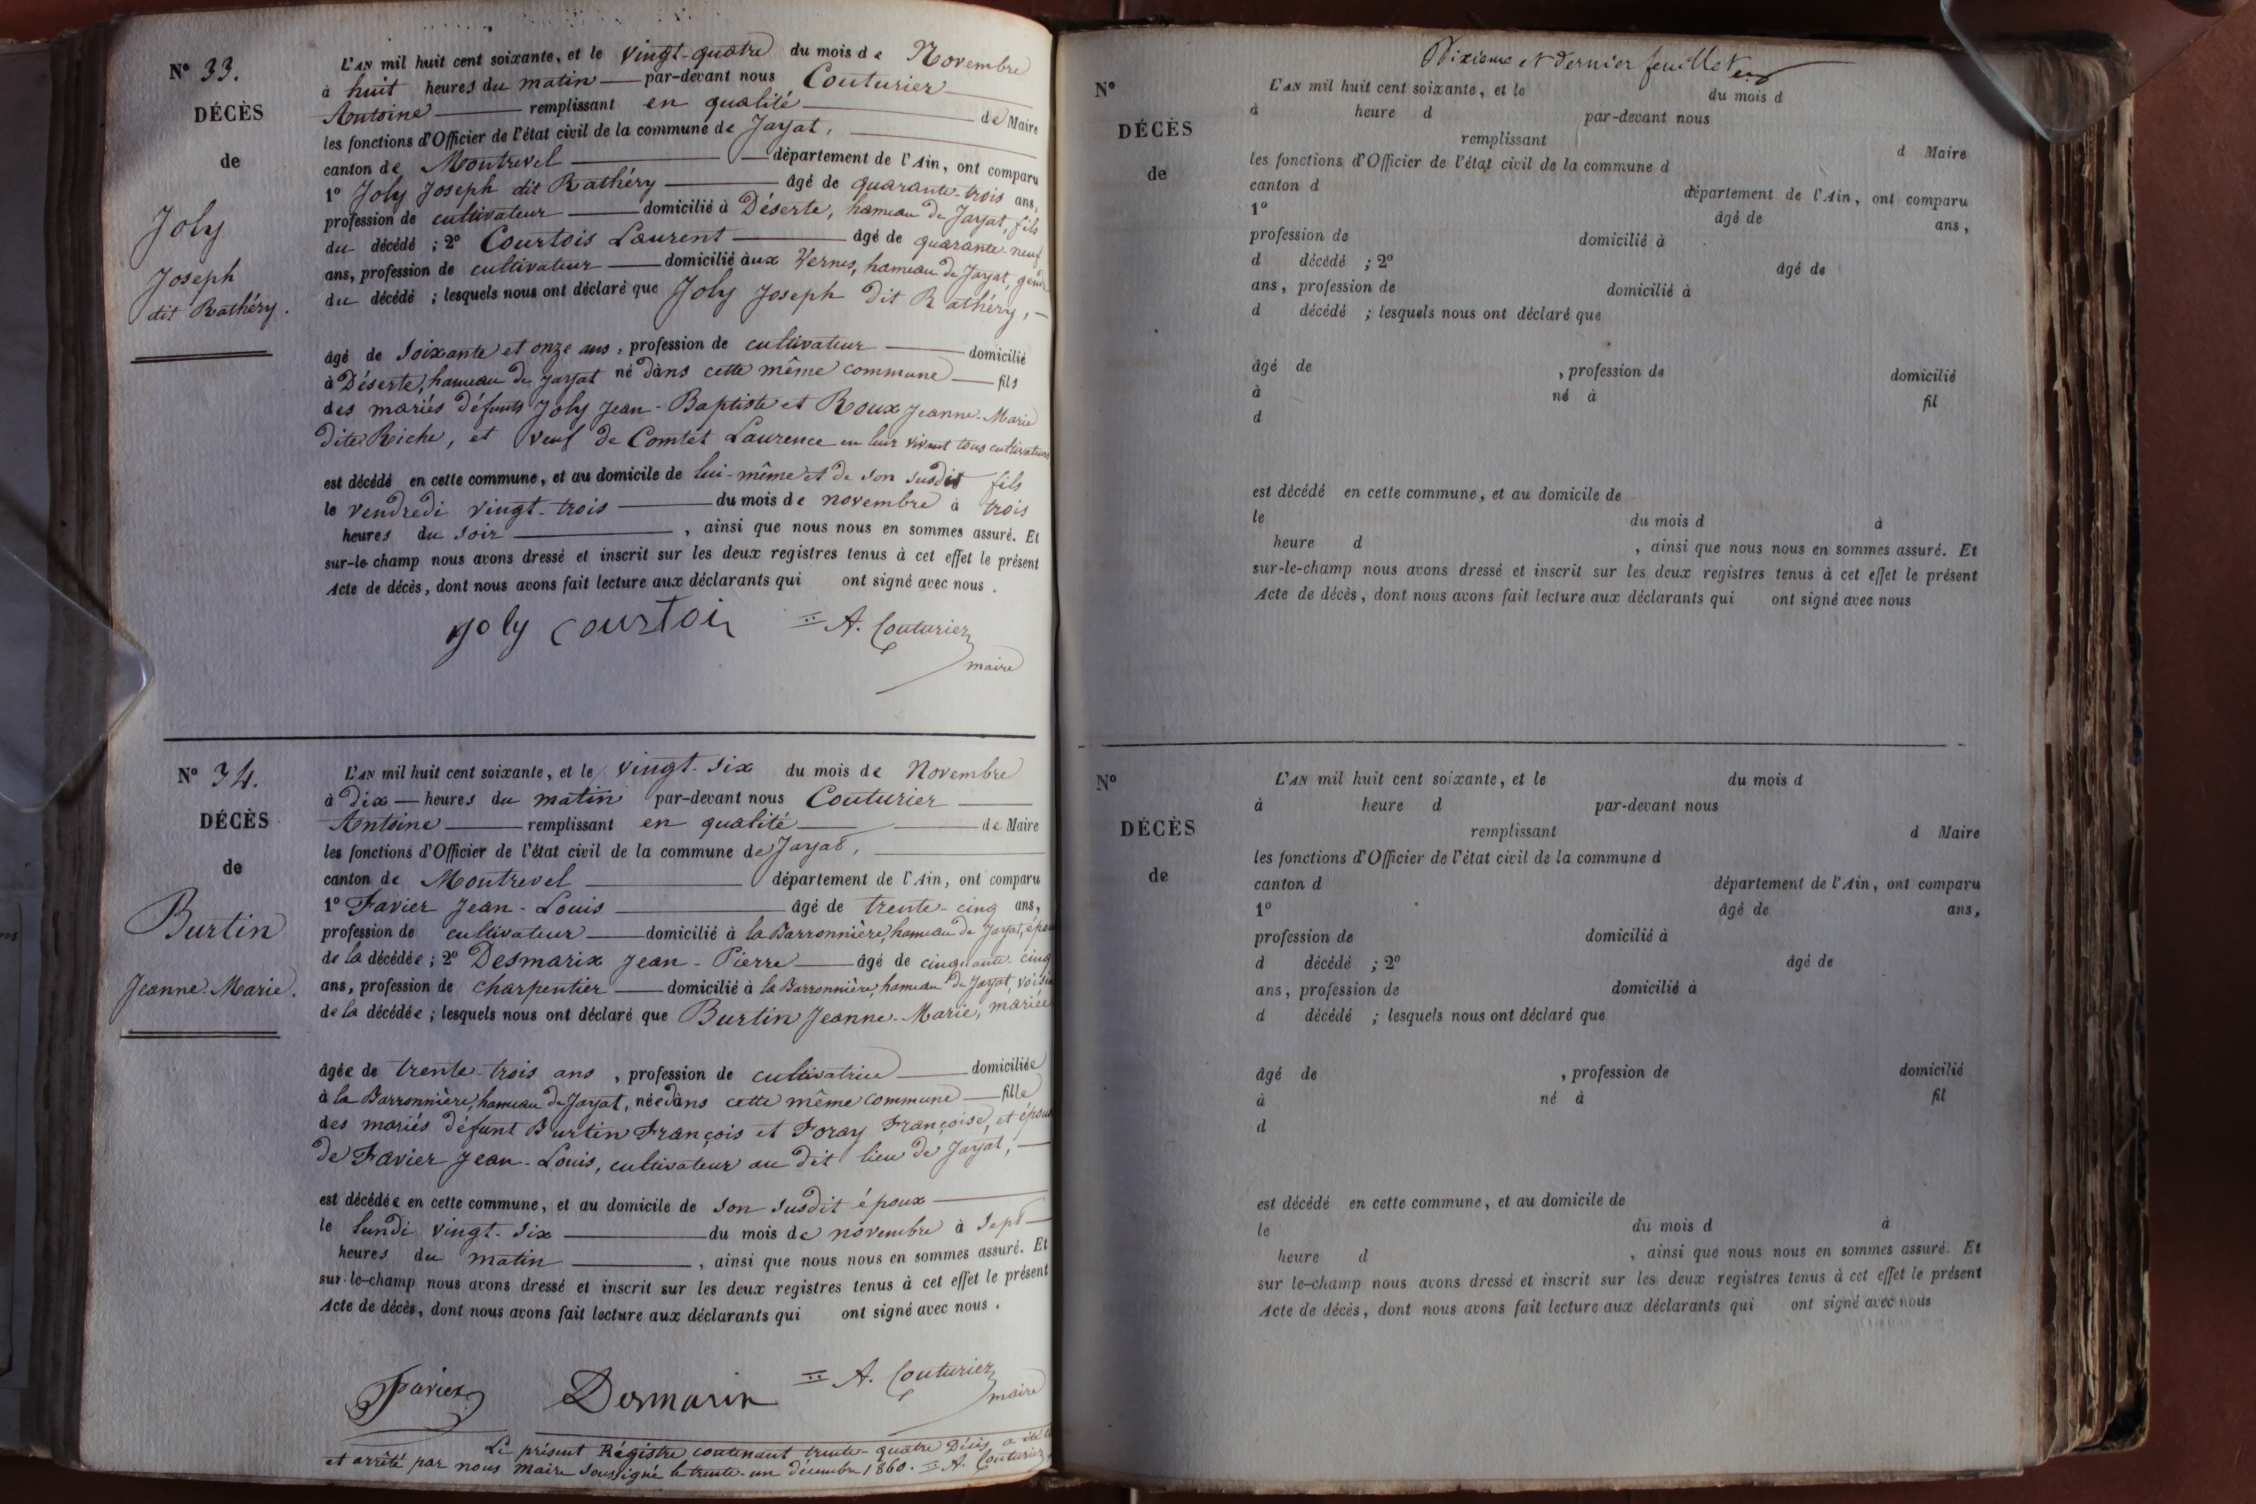 Nº 33.
DÉCÈS
de
Joly
Joseph
dit Rathéry.
L'AN mil huit cent soixante, et le vingt-quatre du mois de Novembre
à huit heures du matin par-devant nous Couturier
Antoine remplissant en qualité de Maire
les fonctions d'Officier de l'état civil de la commune de Jayat,
canton de Montrevel département de l'Ain, ont comparu
1º Joly Joseph dit Rathéry âgé de quarante-trois ans,
profession de cultivateur domicilié à Déserte, hameau de Jayat, fils
du décédé ; 2º Courtois Laurent âgé de quarante-neuf
ans, profession de cultivateur domicilié aux Vernes, hameau de Jayat,
du décédé ; lesquels nous ont déclaré que Joly Joseph dit Rathéry,
âgé de soixante et onze ans, profession de cultivateur domicilié
à Déserte, hameau de Jayat né dans cette même commune fils
des mariés défunts Joly Jean-Baptiste et Roux Jeanne-Marie
dite Riche, et veuf de Comtet Laurence en leur vivant tous cultivateurs
est décédé en cette commune, et au domicile de lui-même et de son susdit fils
le vendredi vingt-trois du mois de novembre à trois
heures du soir , ainsi que nous nous en sommes assuré. Et
sur-le-champ nous avons dressé et inscrit sur les deux registres tenus à cet effet le présent
Acte de décès, dont nous avons fait lecture aux déclarants qui ont signé avec nous .
Joly Courtois A. Couturier
maire
Nº 34.
DÉCÈS
de
Burtin
Jeanne-Marie.
L'AN mil huit cent soixante, et le vingt-six du mois de Novembre
à dix heures du matin par-devant nous Couturier
Antoine remplissant en qualité de Maire
les fonctions d'Officier de l'état civil de la commune de Jayat,
canton de Montrevel département de l'Ain, ont comparu
1º Favier Jean-Louis âgé de trente-cinq ans,
profession de cultivateur domicilié à la Barronnière, hameau de Jayat,
de la décédée ; 2º Desmarix Jean-Pierre âgé de cinquante-cinq
ans, profession de charpentier domicilié à la Barronnière, hameau de Jayat, voisin
de la décédée ; lesquels nous ont déclaré que Burtin Jeanne-Marie, mariée
âgée de trente-trois ans , profession de cultivatrice domiciliée
à la Barronnière, hameau de Jayat, née dans cette même commune fille
des mariés défunt Burtin François et Foray Françoise, et épouse
de Favier Jean-Louis, cultivateur au dit lieu de Jayat,
est décédée en cette commune, et au domicile de son susdit époux
le lundi vingt-six du mois de novembre à sept
heures du matin , ainsi que nous nous en sommes assuré. Et
sur-le-champ nous avons dressé et inscrit sur les deux registres tenus à cet effet le présent
Acte de décès, dont nous avons fait lecture aux déclarants qui ont signé avec nous .
Favier Desmarix A. Couturier
maire
Le présent Régistre contenant trente-quatre Décès a été
et arrêté par nous Maire soussigné le trente-un décembre 1860. A. Couturier
Dixième et dernier feuillet
Nº
DÉCÈS
de
L'AN mil huit cent soixante, et le du mois d
à heure d par-devant nous
remplissant d Maire
les fonctions d'Officier de l'état civil de la commune d
canton d département de l'Ain, ont comparu
1º âgé de ans,
profession de domicilié à
d décédé ; 2º âgé de
ans, profession de domicilié à
d décédé ; lesquels nous ont déclaré que
âgé de , profession de domicilié
à né à fil
d
est décédé en cette commune, et au domicile de
le du mois d à
heure d , ainsi que nous nous en sommes assuré. Et
sur-le-champ nous avons dressé et inscrit sur les deux registres tenus à cet effet le présent
Acte de décès, dont nous avons fait lecture aux déclarants qui ont signé avec nous
Nº
DÉCÈS
de
L'AN mil huit cent soixante, et le du mois d
à heure d par-devant nous
remplissant d Maire
les fonctions d'Officier de l'état civil de la commune d
canton d département de l'Ain, ont comparu
1º âgé de ans,
profession de domicilié à
d décédé ; 2º âgé de
ans, profession de domicilié à
d décédé ; lesquels nous ont déclaré que
âgé de , profession de domicilié
à né à fil
d
est décédé en cette commune, et au domicile de
le du mois d à
heure d , ainsi que nous nous en sommes assuré. Et
sur le-champ nous avons dressé et inscrit sur les deux registres tenus à cet effet le présent
Acte de décès, dont nous avons fait lecture aux déclarants qui ont signé avec nous